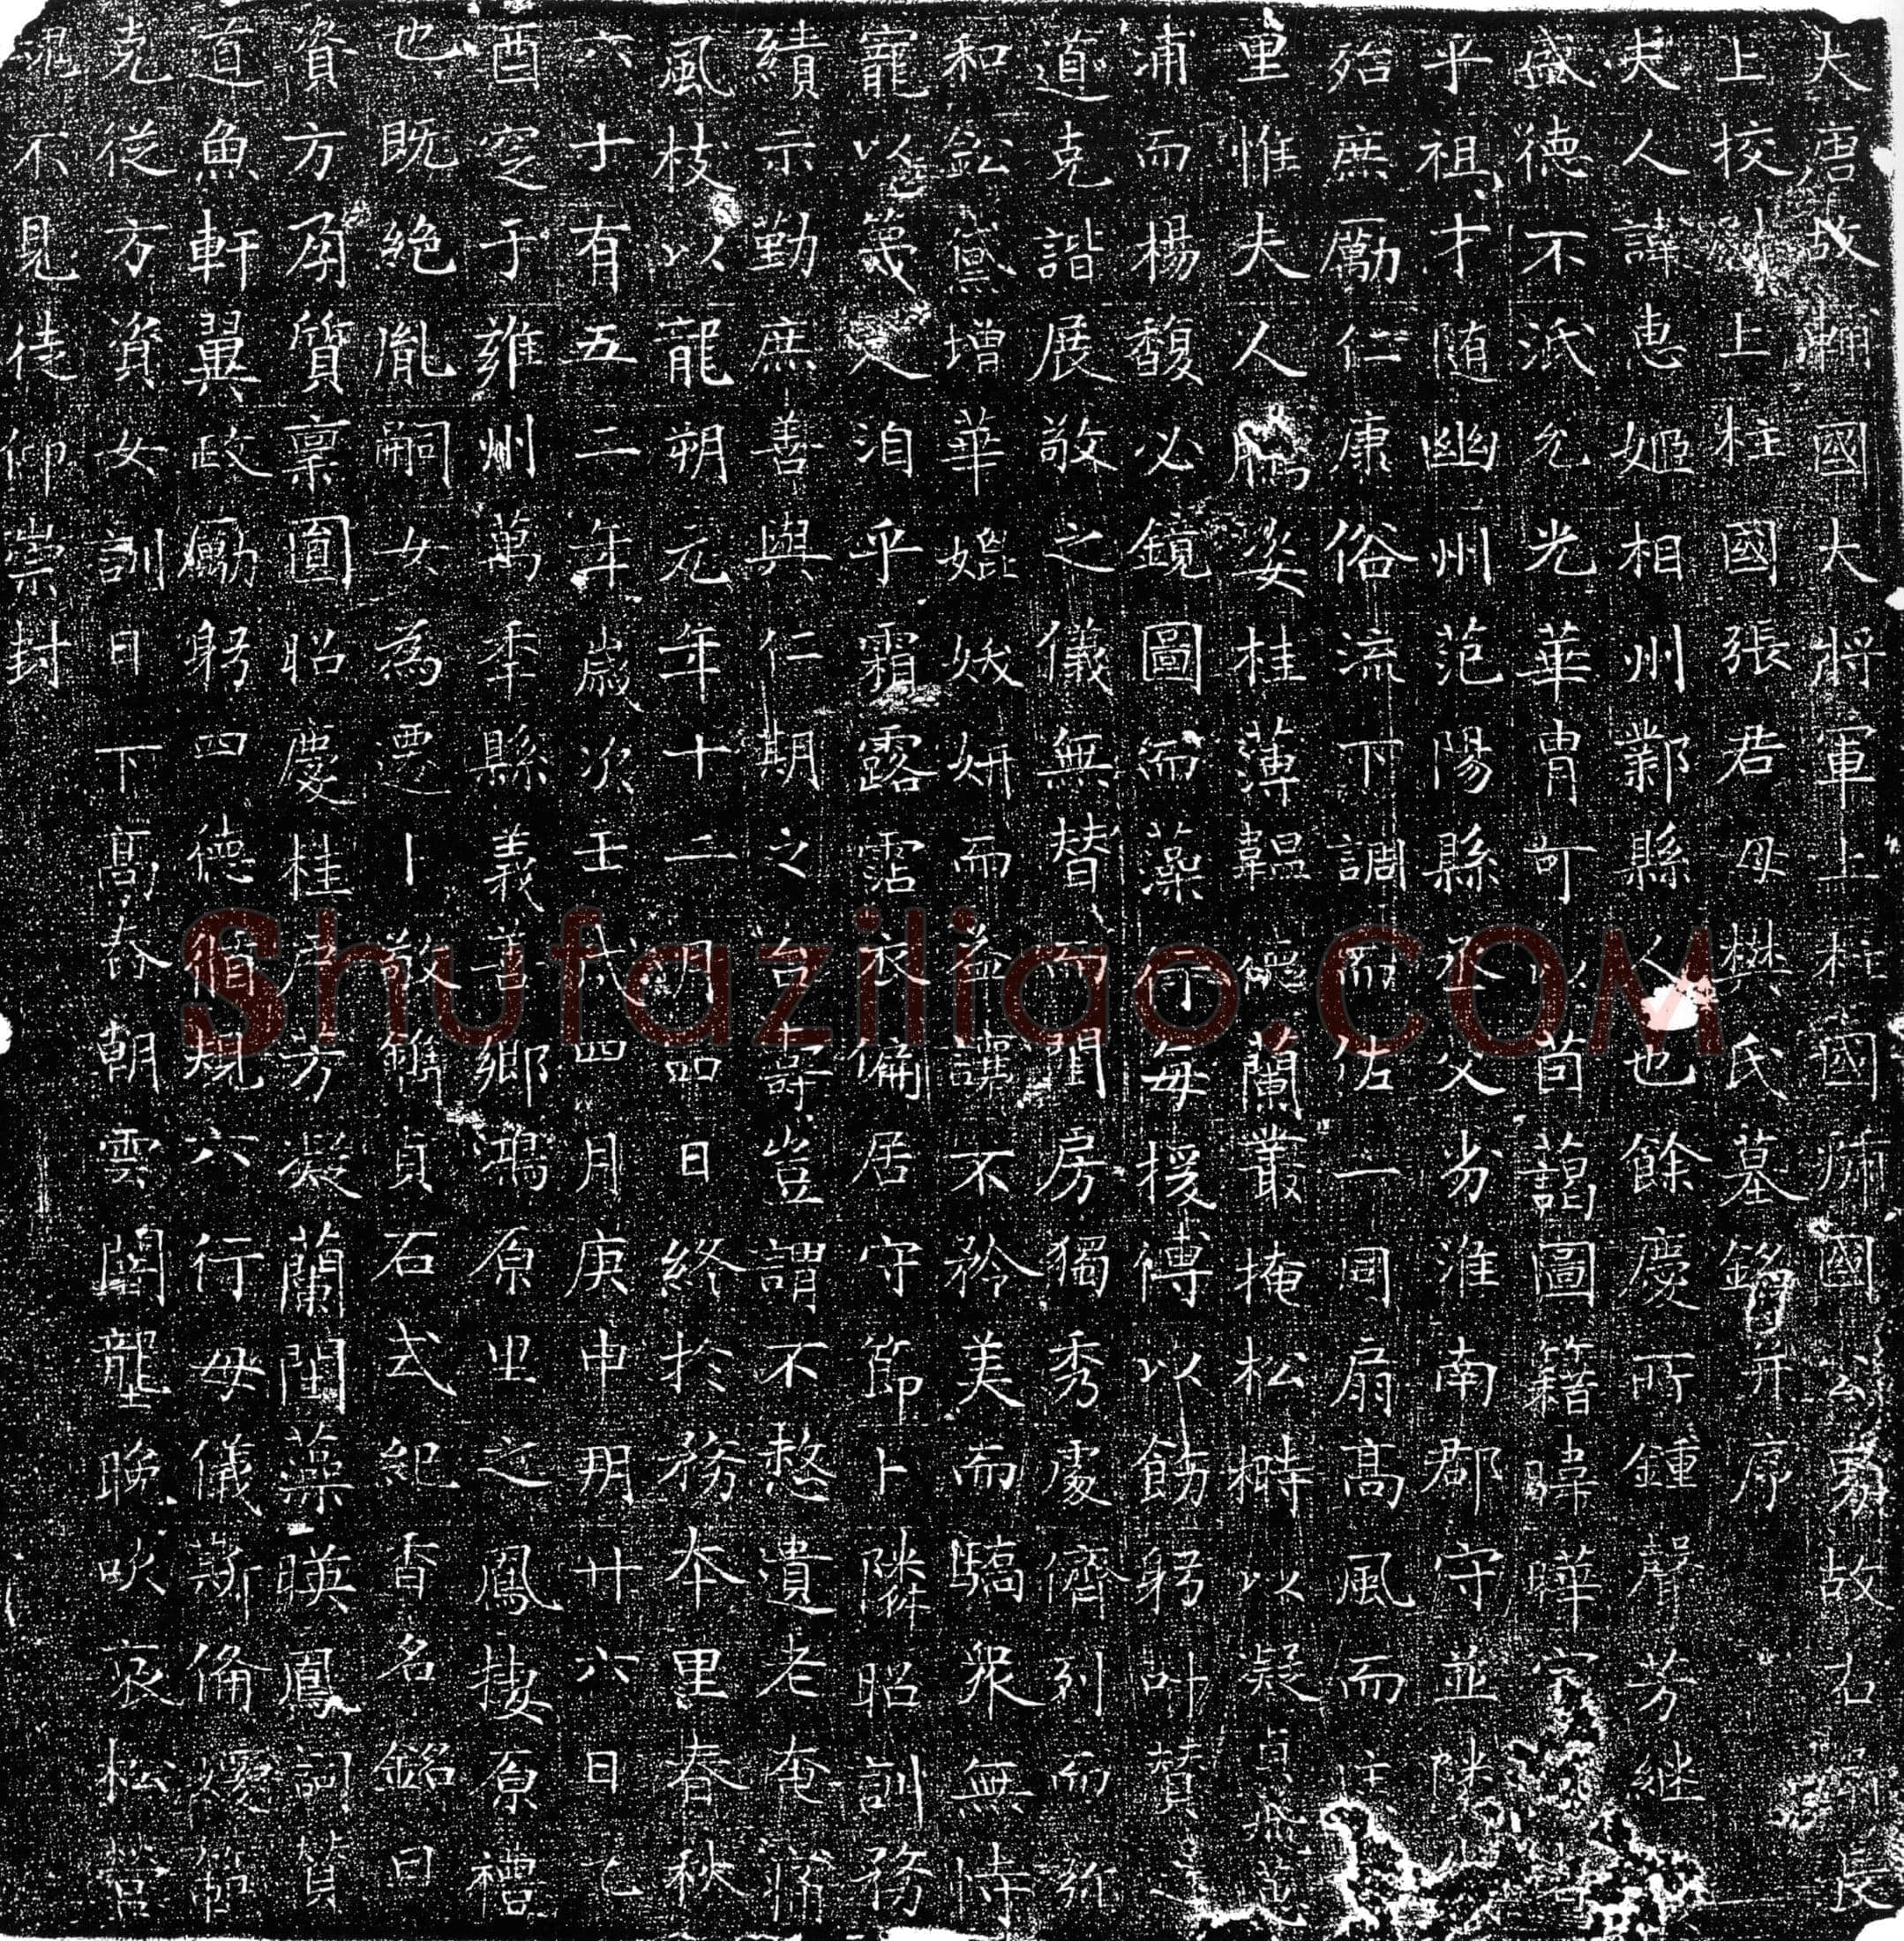 大唐故輔國大將軍上柱國虢國公男故右衛長
上校尉上柱國張君母樊氏墓銘并序
夫人諱惠姬相州鄴縣人也餘慶所鍾聲芳繼
盛德不泯允光華胄可以茵藹圖籍暐曄
乎祖才隨幽州范陽縣丞父方淮南郡守並
殆庶勵仁康俗流下調而居一同扇高風而
里惟夫人腐姿桂薄韞德蘭叢掩松檮以凝貞
浦而楊馥必鏡圖而藻行每援傅以飭躬叶贊
道克諧展敬之儀無替而閨房獨秀處儕列而
和鉛黛增華媲妖妍而益謙不矜美而驕眾無恃
寵以蔑人洎乎霜露霑衣偏居守節卜隣昭訓務
績示勤庶善與仁期之台壽豈謂不憖遺老奄
風枝以龍朔元年十二月四日終於務本里春秋
六十有五二年歲次壬戌四月庚申朔廿六日乙
酉窆于雍州萬年縣義善鄉鴻原里之鳳棲原禮
也既絕胤嗣女為遷卜敬鐫貞石式紀香名銘曰
資方孕質稟圓昭慶桂戶芳凝蘭閨藻暎鳳詞贊
道魚軒翼政勵躬四德循規六行母儀斯備
克從方資女訓日下高舂朝雲闇壟晚吹哀松
魂不見徒仰崇封
Shufaziliao.COM